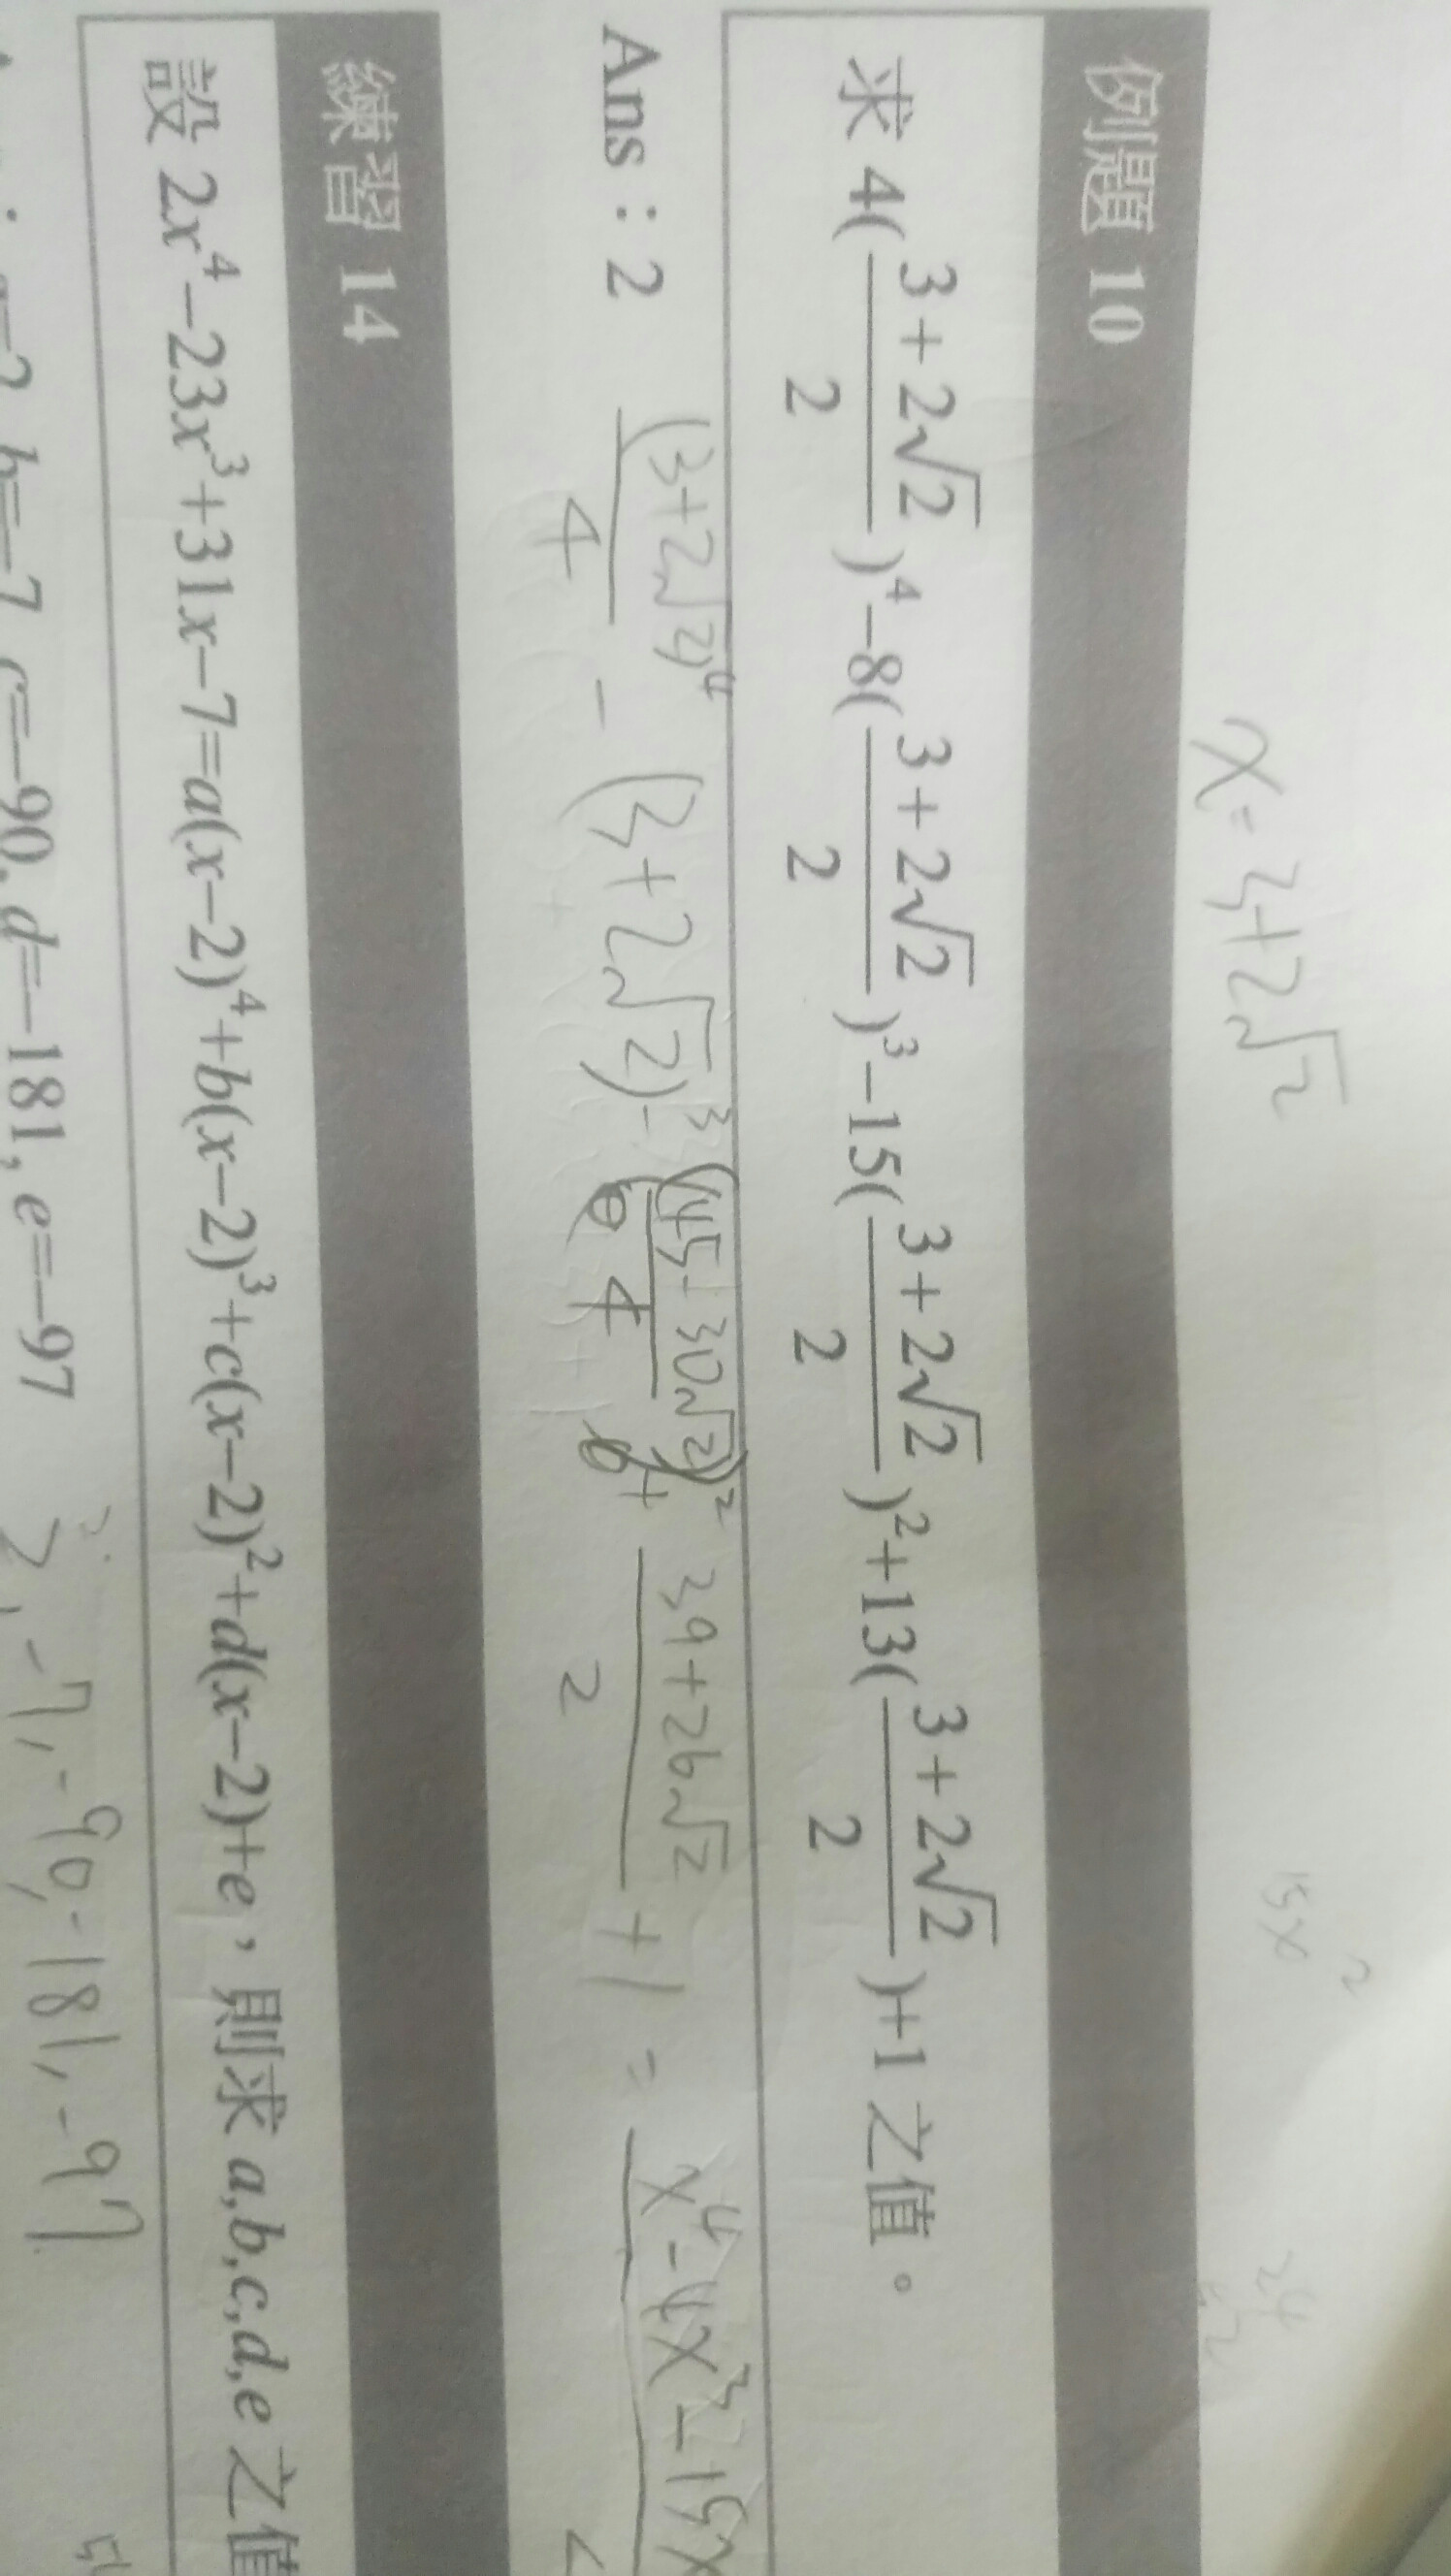 x=3+2√2
15x²
例題 10
求 4(\frac{3+2√2}{2})⁴−8(\frac{3+2√2}{2})³−15(\frac{3+2√2}{2})²+13(\frac{3+2√2}{2})+1 之值。
Ans:2
\frac{(3+2√2)⁴}{4} − (3+2√2)³ − \frac{(45+30√2)²}{4} + \frac{39+26√2}{2} + 1 = x⁴−4x³−15x
練習 14
設 2x⁴−23x³+31x−7=a(x−2)⁴+b(x−2)³+c(x−2)²+d(x−2)+e,則求 a,b,c,d,e 之值
b=−7 c=−90, d=−181, e=−97
2,−7,−90,−181,−97